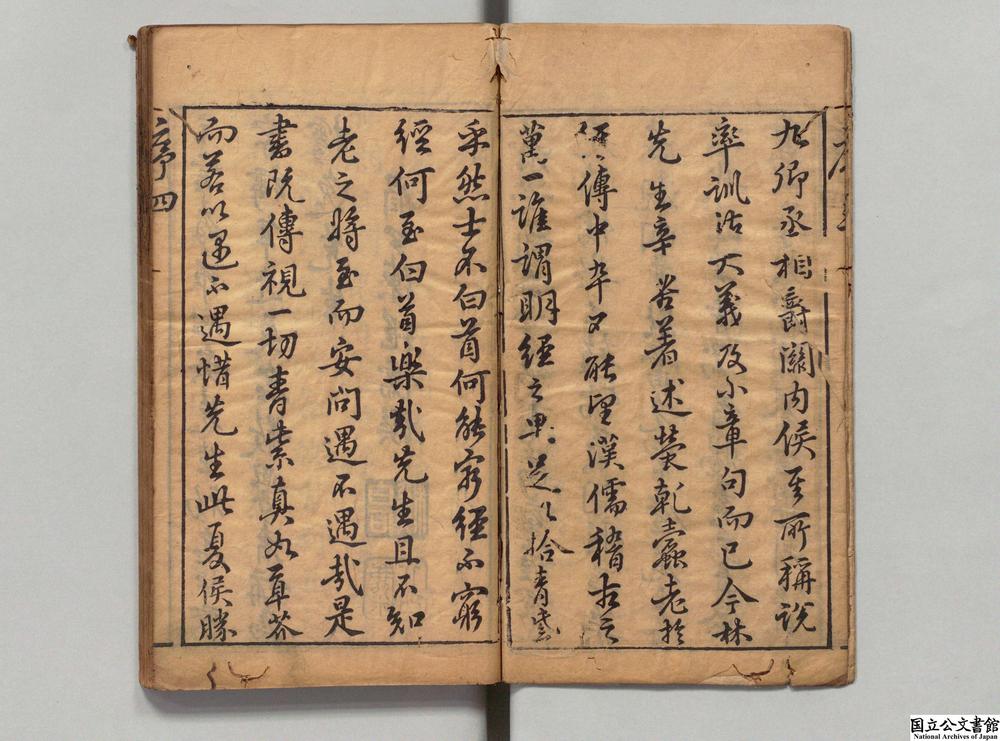 九卿丞相爵關内侯至所稱說
率訓詁大義及小章句而已今林
先生辛苦著述熒乾蠹老於
經傳中卒不能望漢儒稽古之
萬一誰謂明經之果足以拾青紫
乎然士不白首何能窮經不窮
經何至白首樂哉先生且不知
老之將至而安問遇不遇哉是
書既傳視一切青紫真如草芥
而若以遇不遇惜先生此夏侯勝
序四
国立公文書館
National Archives of Japan